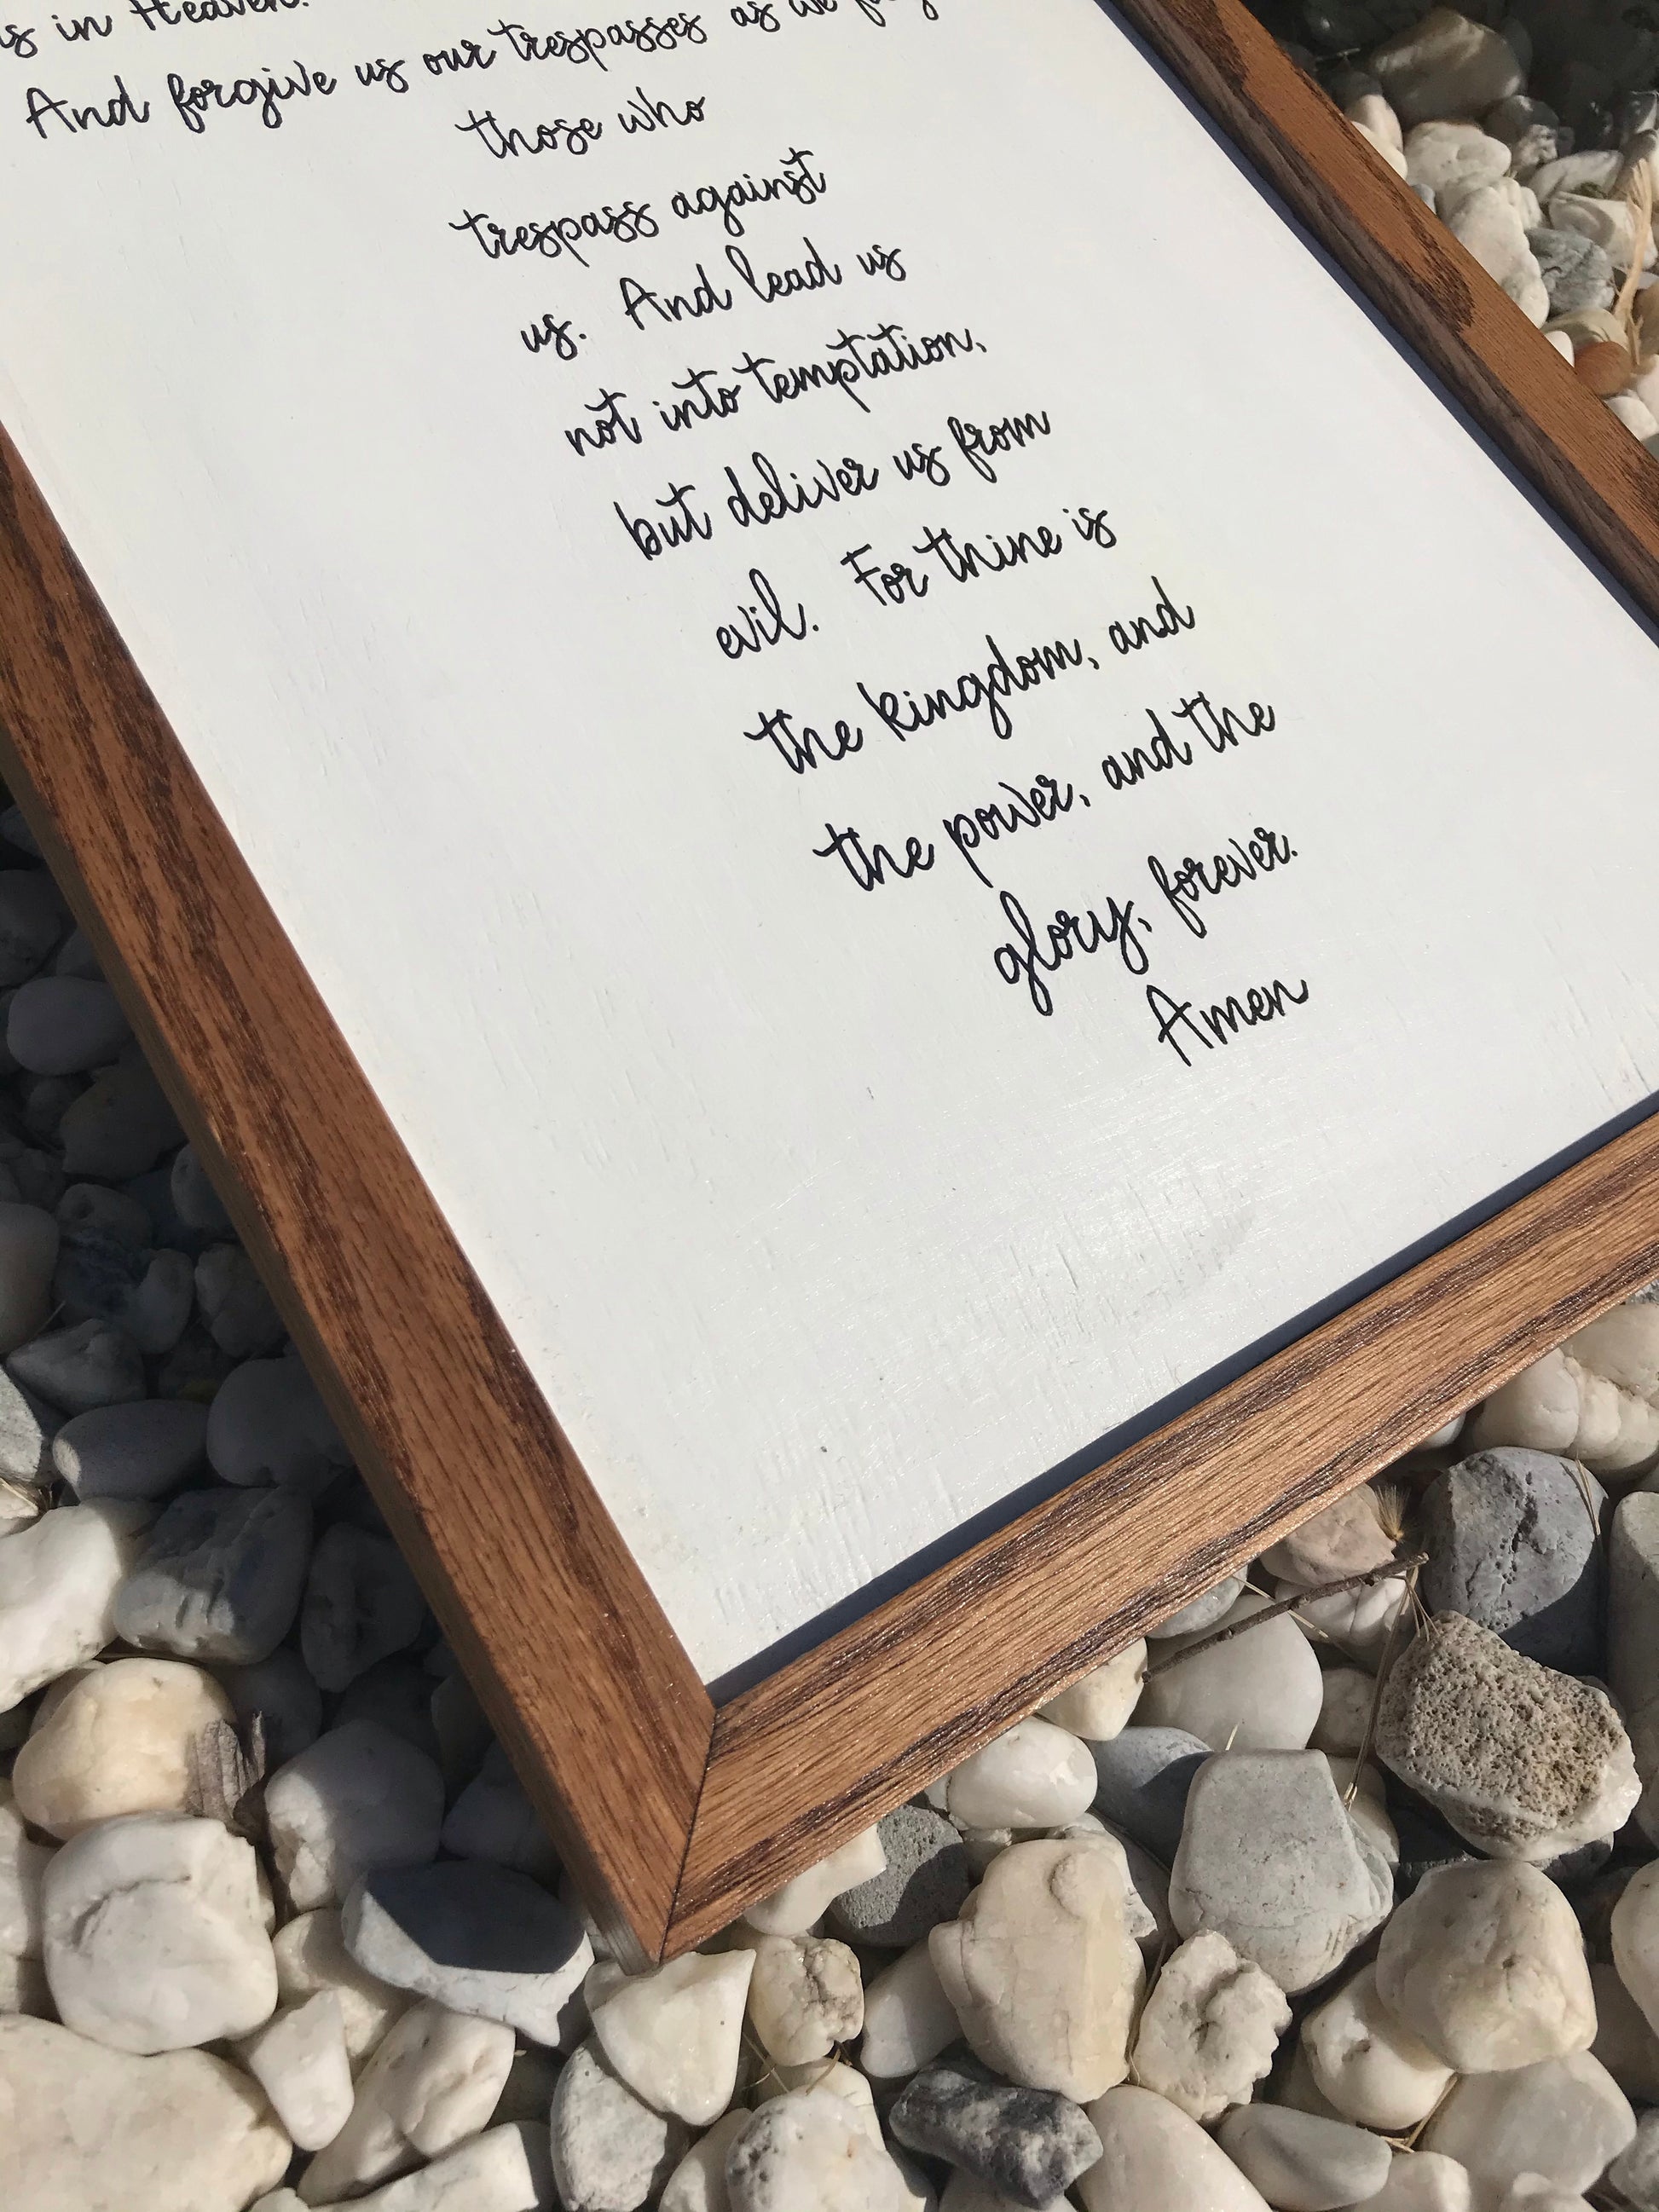 is in Heaven.
And forgive us our trespasses as we
those who
trespass against
us. And lead us
not into temptation,
but deliver us from
evil. For thine is
the kingdom, and
the power, and the
glory, forever.
Amen